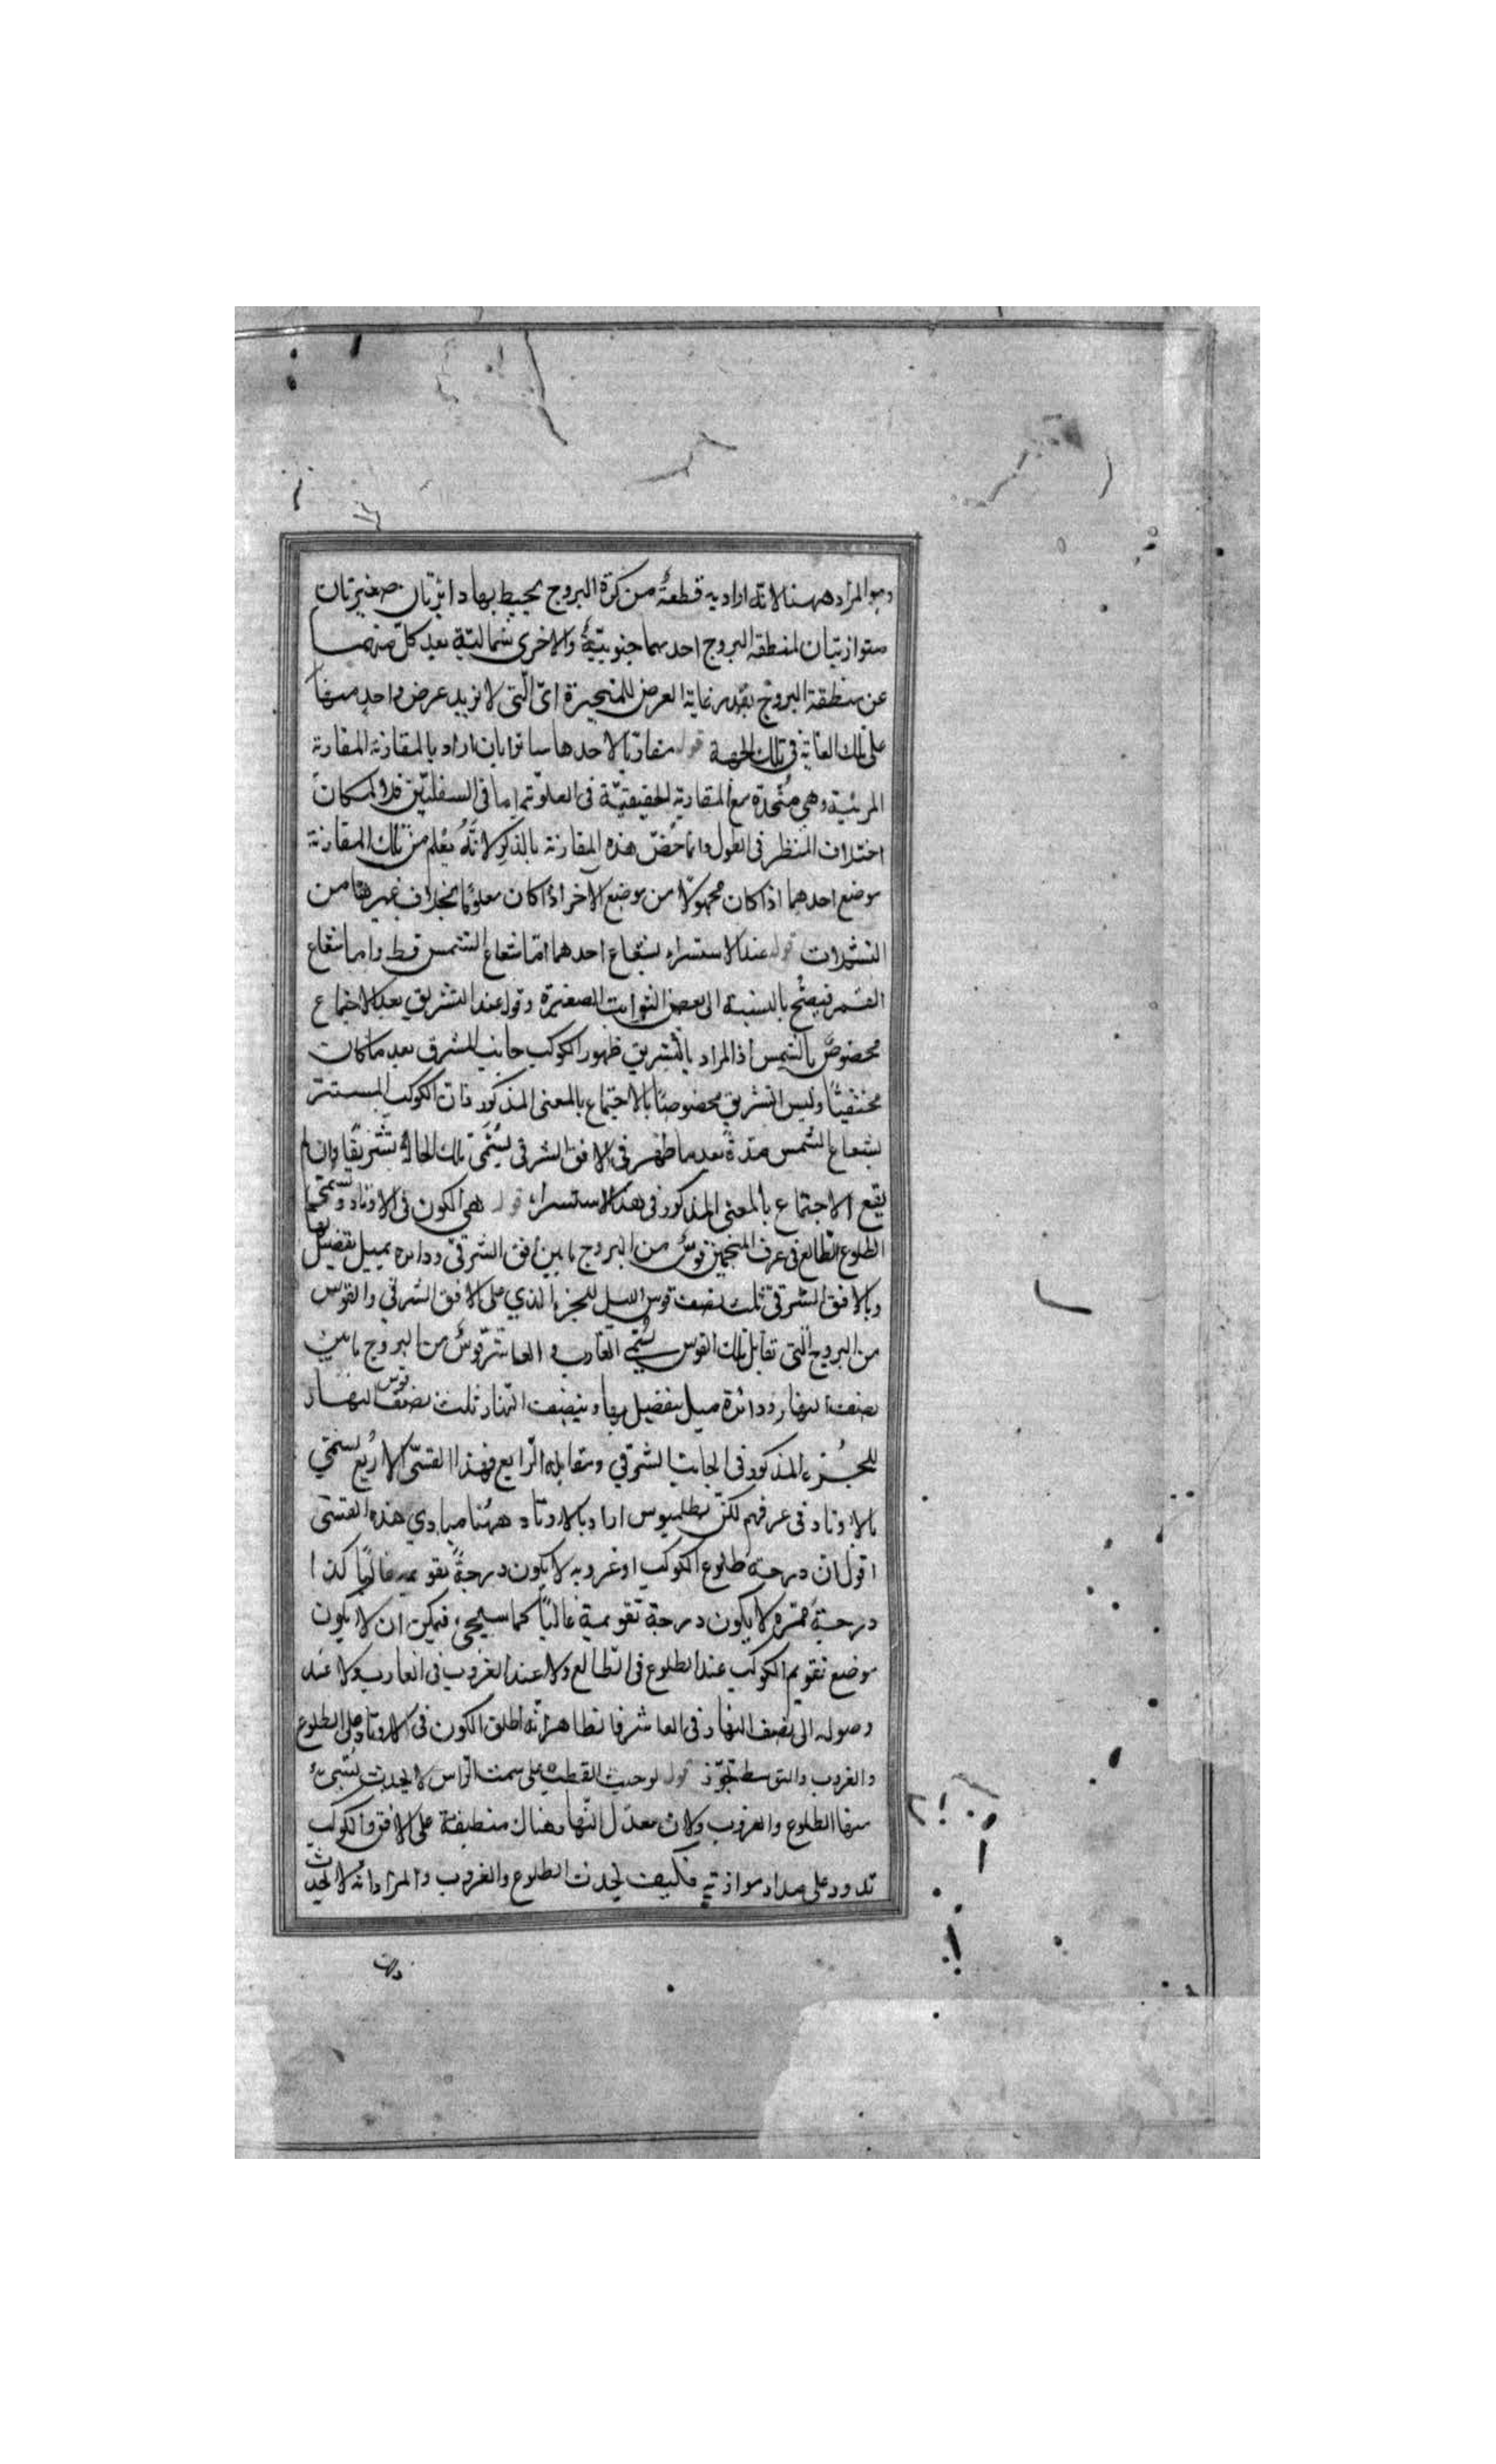 وهو المراد ههنا لانه اراد به قطعةً من كرة البروج يحيط بها دائرتان صغيرتان
متوازيتان لمنطقة البروج احديهما جنوبيّةٌ والاخرى شمالیّة بعد كلّ منهما
عن منطقة البروج بقدر غاية العرض للمتحيرة اى التى لا يزيد عرض واحد منها
على تلك الغاية فى تلك الجهة قوله مقارنًا لاحدها ساترا بان اراد بالمقارنة المقارنة
المرئية وهى متّحدة مع المقارنة الحقيقيّة فى العلويّة اما فى السفليّين فلامكان
اختلاف المنظر فى الطول وانما خُصّ هذه المقارنة بالذكر لانّهُ يعلم من تلك المقارنة
موضع احدهما اذا كان مجهولًا من موضع الاخر اذا كان معلومًا بخلاف غيرها من
التشكلات قوله عند الاستسرار بشعاع احدهما امّا شعاع الشمس فقط واما شعاع
القمر فيصحّ بالنسبة الى بعض الثوابت الصغيرة وقوله عند التشريق بعد الاجتماع
مخصوصٌ بالشمس اذ المراد بالتشريق ظهور الكوكب جانب المشرق بعد ما كان
مختفيًا وليس التشريق مخصوصًا بالاجتماع بالمعنى المذكور فان الكوكب المستتر
بشعاع الشمس مدّةً بعد ما ظهر فى الافق الشرقى يسمّى تلك الحالة تشريقًا وان لم
يقع الاجتماع بالمعنى المذكور فى هذا الاستسرار قوله هى الكون فى الاوتاد
الطلوع الطالع فى عرف المنجمين قوسٌ من البروج ما بين افق الشرقىّ ودائرة ميل يفضل بها
وبالافق الشرقىّ ثلث نصف قوس الليل للجزء الذي على الافق الشرقي والقوس
من البروج الّتى تقابل تلك القوس يسمّى الغارب والعاشر قوسٌ من البروج ما بين
نصف النهار ودائرة ميل يفضل بها وبنصف النهار ثلث نصف قوس النهار
للجُزء المذكور فى الجانب الشرقي ومقابله الرابع فهذه القسّى الاربع يسمّى
بالاوتاد فى عرفهم لكنّ بطلميوس اراد بالاوتاد ههنا مبادي هذه القسّى
اقول ان درجة طلوع الكوكب او غروبه لا يكون درجةً تقويمه غالبًا كذا
درجة ممرّه لا يكون درجة تقويمية غالبًا كما سيجىء فيمكن ان لا يكون
موضع تقويم الكوكب عند الطلوع فى الطالع ولا عند الغروب فى الغارب ولا عند
وصوله الى نصف النهار فى العاشر فالظاهر انّه اطلق الكون فى الاوتاد على الطلوع
والغروب والتوسط تجوّز قوله لو حيث القطب على سمت الراس لا يحدث شىءٌ
منها الطلوع والغروب ولان معدّل النهار هناك منطبقة على الافق والكوكب
تدور على مدار موازٍ به فكيف يحدث الطلوع والغروب والمراد انه لا يحدث